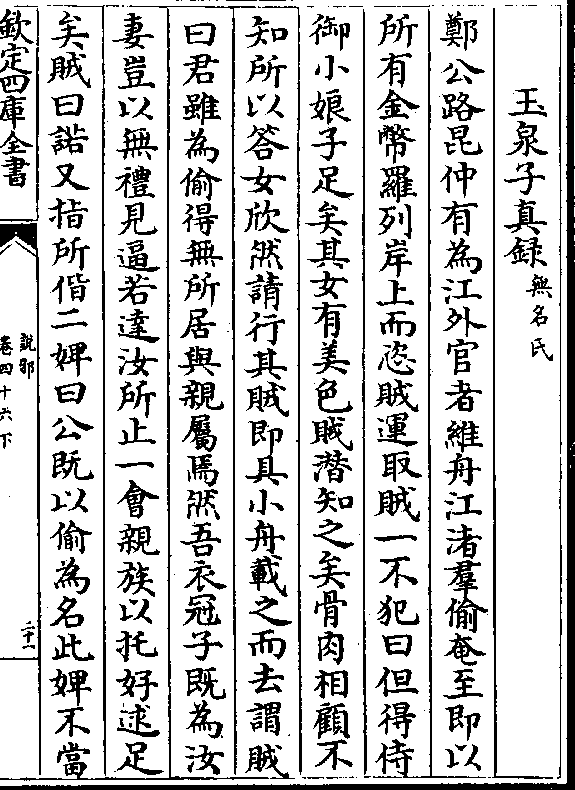 玉泉子真録無名氏
鄭公路昆仲有為江外官者維舟江渚羣偷奄至即以
所有金幣羅列岸上而恣賊運取賊一不犯曰但得侍
御小娘子足矣其女有美色賊潛知之矣骨肉相顧不
知所以答女欣然請行其賊即具小舟載之而去謂賊
曰君雖為偷得無所居與親屬焉然吾衣冠子既為汝
妻豈以無禮見逼若達汝所止一會親族以托好逑足
矣賊曰諾又指所偕二婢曰公既以偷為名此婢不當
欽定四庫全書
說郛
卷四十六下
二十一